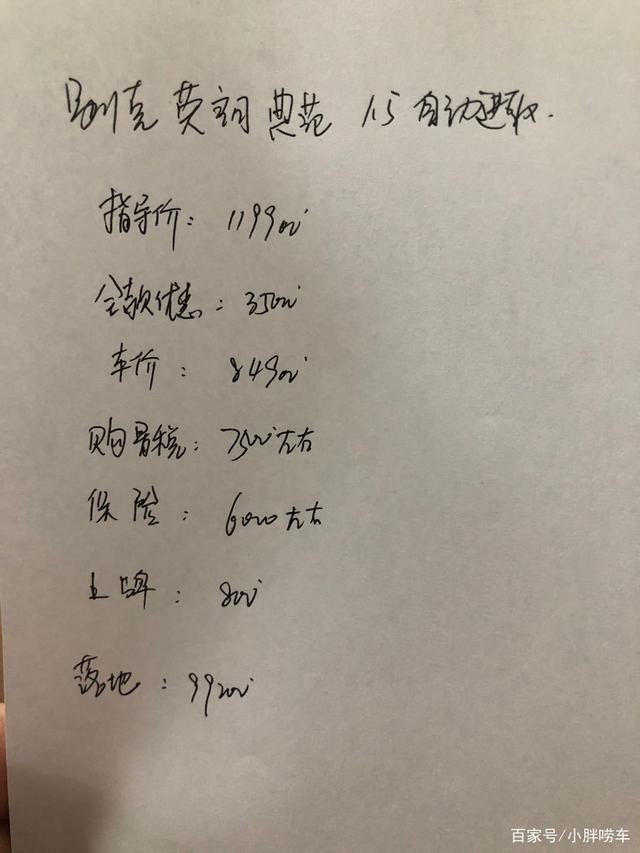 别克英朗典范 1.5自动进取.
指导价：119900
全款优惠：35000
车价：84900
购置税：7500左右
保险：6000左右
上牌：800
落地：99200
百家号/小胖唠车